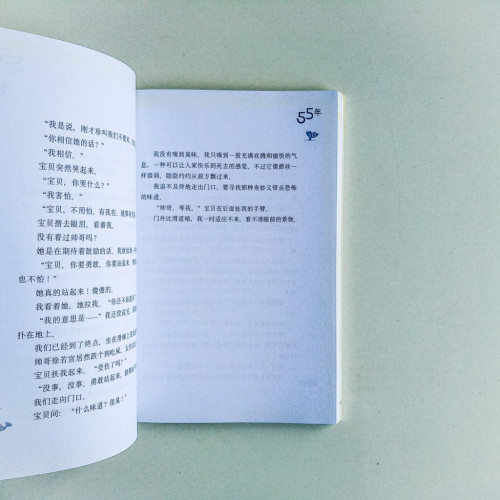 “我是说，刚才珍叫我们不要
“你相信她的话？”
“我相信。”
宝贝突然哭起来。
“宝贝，你哭什么？”
“我害怕。”
“宝贝，不用怕，有我在，就
宝贝揩去眼泪，看着我。
没有看过帅哥吗？
她是在期待着鼓励的话，我就给她
“宝贝，你要勇敢，你要站起来，
也不怕！”
她真的站起来！傻傻的。
我看着她，她拉我，“你还不
“我的意思是……”我还没说完，
扑在地上。
我们已经到了终点，坐在滑梯上
帅哥徐若宣居然跌个狗吃屎，
宝贝扶我起来，“受伤了吗？”
“没事，没事，勇敢站起来，
我们走向门口。
宝贝问：“什么味道？很臭！”
55年
我没有嗅到臭味，我只嗅到一股充满欢腾和愉快的气
息，一种可以让人家快乐到死去的感觉，不过它像游丝一
样微弱，隐隐约约从前方飘过来。
我迫不及待地走出门口，要寻找那种奇妙又带点恐怖
的味道。
“帅哥，等我。”宝贝在后面扯我的手臂。
门外比滑道暗，我一时适应不来，看不清眼前的景物。